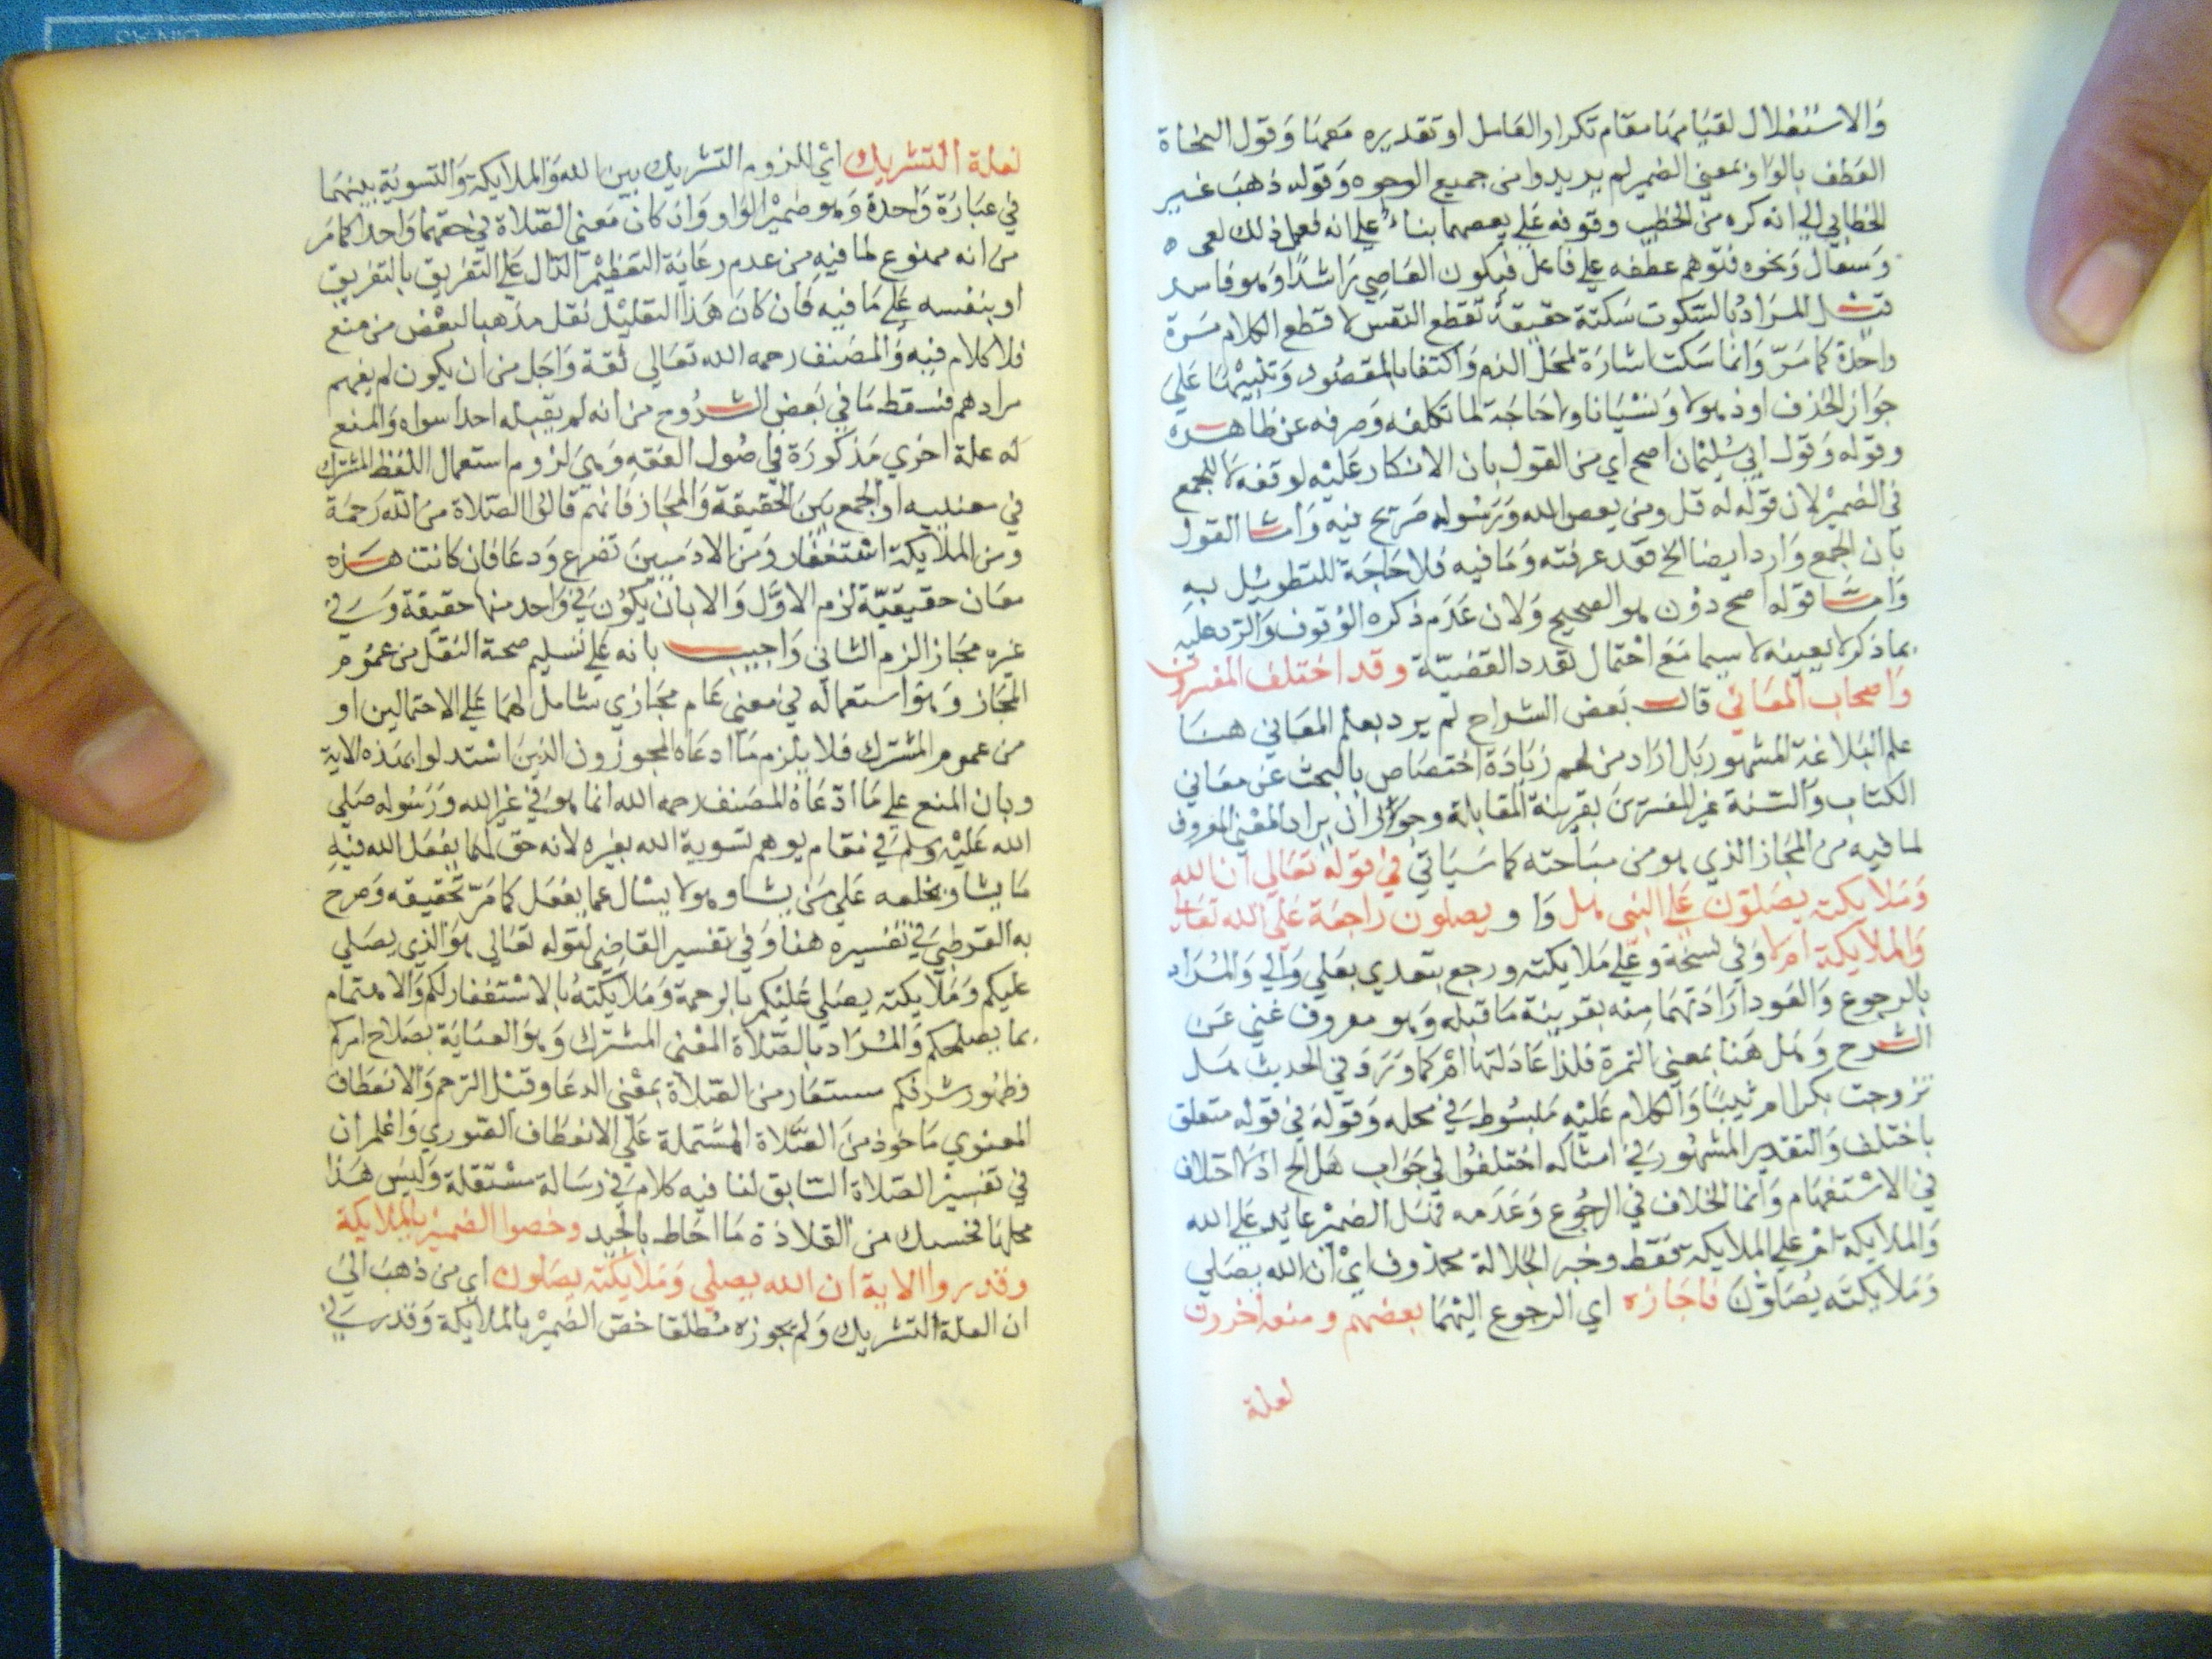 والاستقلال لقيامها مقام تكرار العامل او تقديره معها وقول النحاة
العطف بالواو بمعنى الضمير لم يريدوا من جميع الوجوه وقوله ذهب غير
الخطابي الي انه كره من الخطيب وقوفه علي يعصهما بناء علي انه فعل ذلك لعى
وسعال ونحوه فتوهم عطفه علي فاعل فيكون العاصي راشدا وهو فاسد
قيل المراد بالسكوت سكتة حقيقة تقطع النفس لا قطع الكلام مرة
واحدة كما مر وانما سكت اشارة لمحل الذم واكتفا بالمقصود وتنبيها علي
جواز الحذف او ذهولا ونسيانا ولا حاجة لما تكلفه وصرفه عن ظاهره
وقوله وقول ابي سليمان اصح اي من القول بان الانكار عليه لوقفه لا للجمع
في الضمير لان قوله له قل ومن يعص الله ورسوله صريح فيه واما القول
بان الجمع وارد ايضا الخ فقد عرفته وما فيه فلا حاجة للتطويل به
واما قوله اصح دون هو الصحيح ولان عدم ذكره الوقوف والرد عليه
بما ذكر لا يعينه لا سيما مع احتمال تعدد القضية وقد اختلف المفسرون
واصحاب المعاني قال بعض الشراح لم يرد بعلم المعاني هنا
علم البلاغة المشهور بل اراد من لهم زيادة اختصاص بالبحث عن معاني
الكتاب والسنة غير المفسرين بقرينة المقابلة وجواز ان يراد المعنى المعروف
لما فيه من المجاز الذي هو من مباحثه كما سياتي في قوله تعالي ان الله
وملايكته يصلون علي النبي هل واو يصلون راجعة علي الله تعالي
والملايكة ام لا وفي نسخة وعلي ملايكته ورجع يتعدي بعلي والي والمراد
بالرجوع والعود ارادتهما منه بقرينة ما قبله وهو معروف غني عن
الشرح وهل هنا بمعني الهمزة فلذا عادلتها ام كما ورد في الحديث هل
تزوجت بكرا ام ثيبا والكلام عليه مبسوط في محله وقوله في قوله متعلق
باختلف والتقدير المشهور في امثاله اختلفوا في جواب هل الخ اذ لا اختلاف
في الاستفهام وانما الخلاف في الرجوع وعدمه فهل الضمير عايد علي الله
والملايكة ام علي الملايكة فقط وخبر الجلالة محذوف اي ان الله يصلي
وملايكته يصلون فاجازه اي الرجوع اليهما بعضهم ومنعه اخرون
لعلة
لعلة التشريك اي للزوم التشريك بين الله والملايكة والتسوية بينهما
في عبارة واحدة وهو ضمير الواو وان كان معني الصلاة في حقهما واحدا كما مر
من انه ممنوع لما فيه من عدم رعاية التعظيم الدال علي التفريق بالتفريق
او بنفسه علي ما فيه فان كان هذا التعليل نقل مذهبا لبعض من منع
فلا كلام فيه والمصنف رحمه الله تعالي ثقة واجل من ان يكون لم يفهم
مرادهم فسقط ما في بعض الشروح من انه لم يقبله احد سواه والمنع
له علة اخري مذكورة في اصول الفقه وهي لزوم استعمال اللفظ المشترك
في معنييه او الجمع بين الحقيقة والمجاز فانهم قالوا الصلاة من الله رحمة
ومن الملايكة استغفار ومن الادميين تضرع ودعا فان كانت هذه
معان حقيقية لزم الاول والا بان يكون في واحد منها حقيقة وفي
غيره مجاز الزم الثاني واجيب بانه علي تسليم صحة النقل من عموم
المجاز وهو استعماله في معني عام مجازي شامل لهما علي الاحتمالين او
من عموم المشترك فلا يلزم ما ادعاه المجوزون الذين استدلوا بهذه الاية
وبان المنع علي ما ادعاه المصنف رحمه الله انما هو في غير الله ورسوله صلي
الله عليه وسلم في مقام يوهم تسوية الله بغيره لانه حق لهما يفعل الله فيه
ما يشا ويخلعه علي من يشا وهو لا يسال عما يفعل كما مر تحقيقه وصرح
به القرطبي في تفسيره هنا وفي تفسير القاضي لقوله تعالي هو الذي يصلي
عليكم وملايكته يصلي عليكم بالرحمة وملايكته بالاستغفار لكم والاهتمام
بما يصلحكم والمراد بالصلاة المعنى المشترك وهو العناية بصلاح امركم
وظهور شرفكم مستعار من الصلاة بمعنى الدعا وقيل الترحم والانعطاف
المعنوي ماخوذ من الصلاة المشتملة علي الانعطاف الصوري واعلم ان
في تفسير الصلاة السابق لنا فيه كلام في رسالة مستقلة وليس هذا
محلها فحسبك من القلادة ما احاط بالجيد وخصوا الضمير بالملايكة
وقدروا الاية ان الله يصلي وملايكته يصلون اي من ذهب الي
ان العلة التشريك ولم يجوزه مطلقا خص الضمير بالملايكة وقدر في